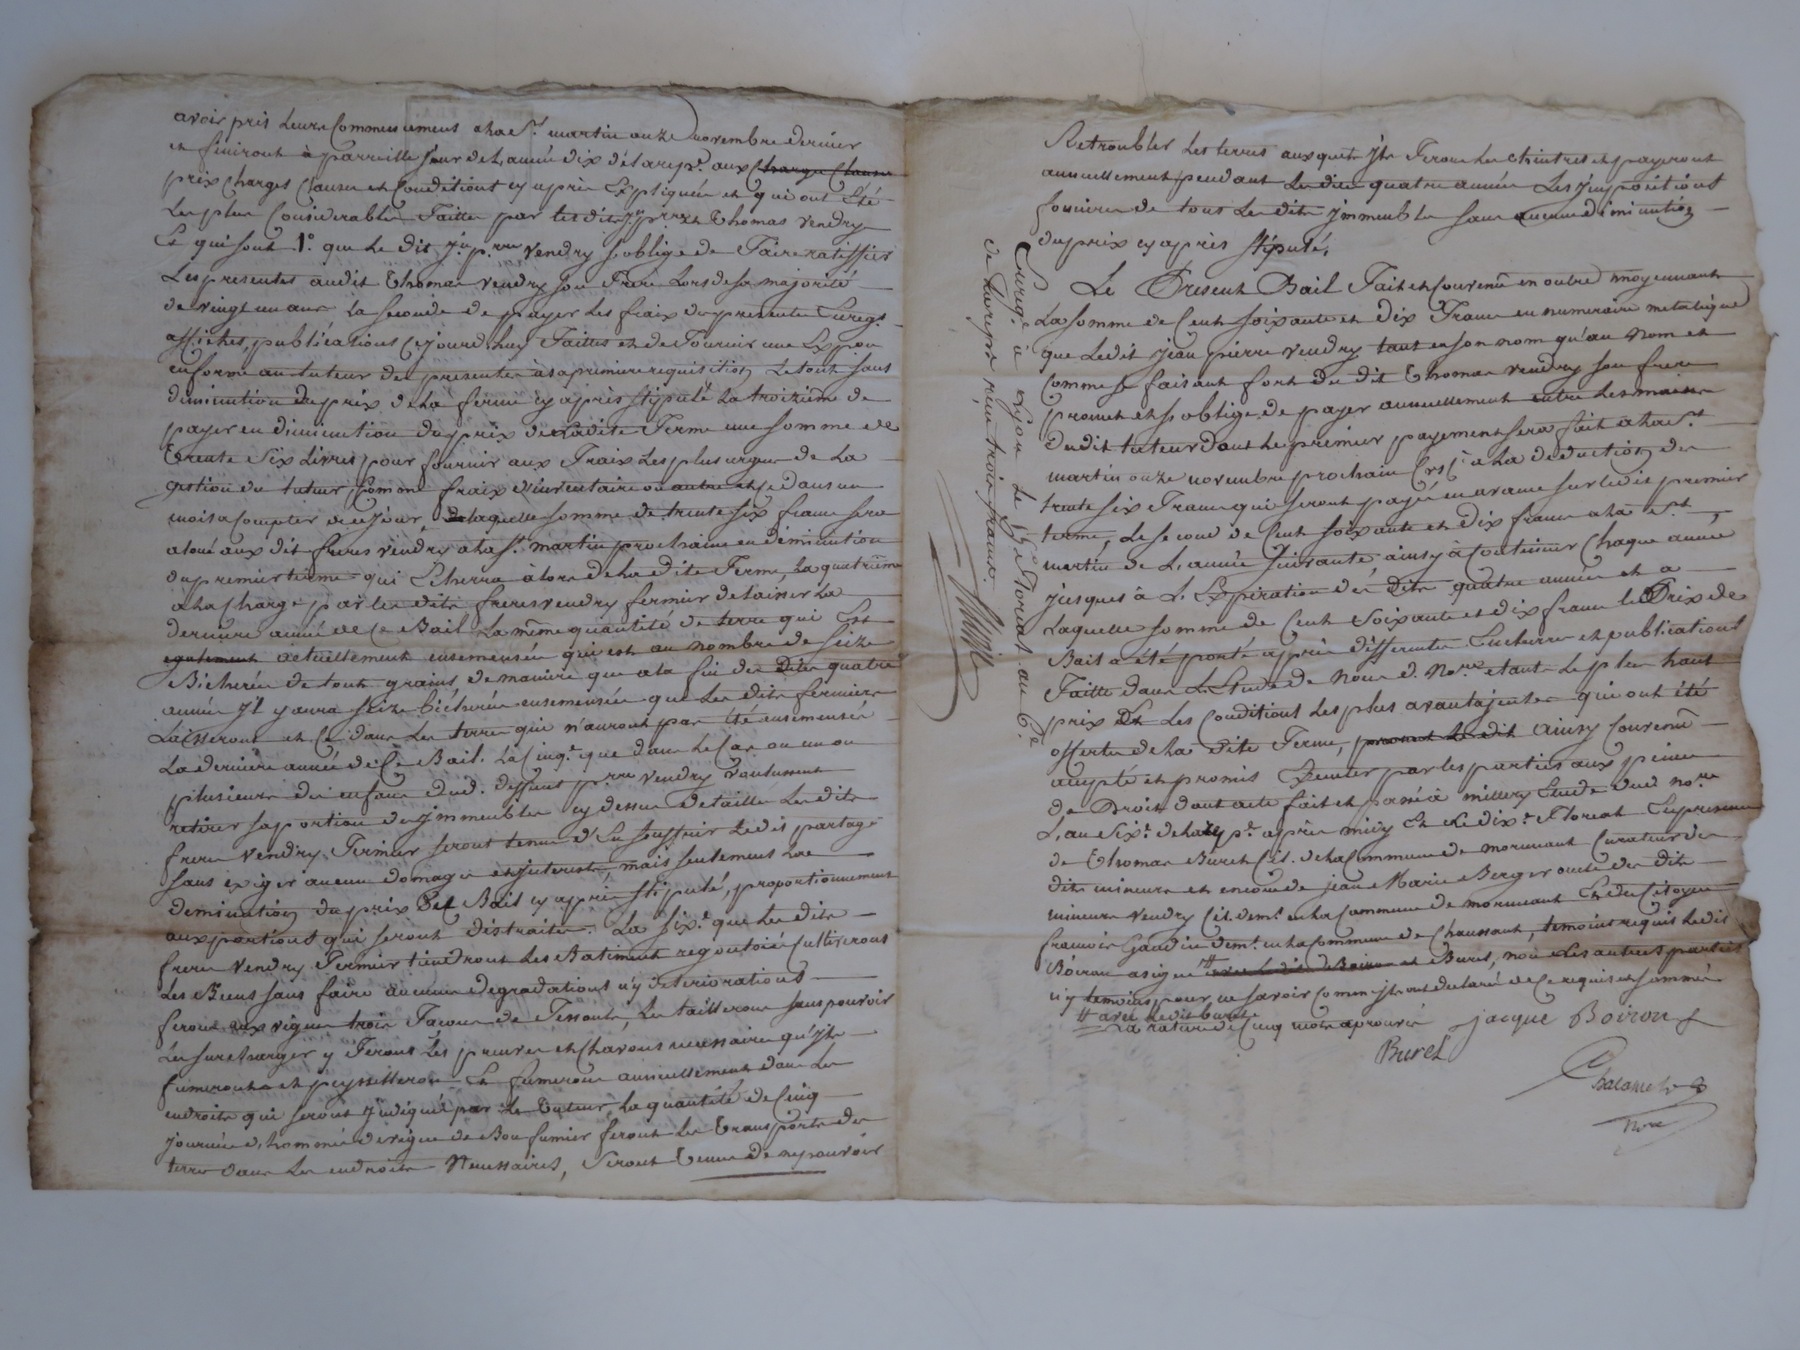 avoir pris leurs Commencement a la St. martin onze novembre dernier
et finiront à parreille jour de L'année dix de la rep.e aux charges Clauses
prix charges Clauses et Conditions cy après Expliquées et qui ont Eté
Les plus Considerables Faittes par les dits Jn p.rre et Thomas Vendry
Et qui sont 1.° que Le dit Jn. p.rre Vendry s'oblige de Faire ratiffier
Les presentes audit Thomas Vendry son Frere Lors de sa majorité
de vingt un ans la seconde de payer les fraix du presente Enreg.t
affiches, publications Cejourd'huy Faittes et de Fournir une Expon
en forme au tuteur des presentes à sa premiere requisition Le tout sans
diminution du prix de La ferme cy après stipulé La troizieme de
payer en diminution du prix de Ladite Ferme une somme de
Trente Six Livres pour fournir aux Fraix Les plus urgens de La
gestion du tuteur, Comme fraix d'inventaire ou autre et ce dans un
mois a Compter de ce jour, de laquelle somme de trente six francs sera
aloué aux dit freres Vendry a la St. martin prochaine en diminution
du premier terme qui Echerra à lors de la dite Ferme, La quatrieme
a la Charge par les dits freres vendry fermier de Laisser La
derniere année de Ce Bail La même quantité de terre qui Est
egalement actuellement ensemensée qui est au nombre de Seize
Bicherées de tout grains, de maniere que a la fin des dites quatre
années Jl y aura seize bicherées ensemensées que Les dits fermiers
Laisserons et Ce dans Les terres qui n'auront pas Eté ensemensée
La derniere année de Ce Bail. La Cinq.e que dans Le Cas ou un ou
plusieurs des enfans dud. deffunt p.rre vendry Voulussent
retirer sa portion des jmmeubles cy dessus detaillés Les dits
freres Vendry Fermier seront tenus d'En souffrir Ledit partage
sans exiger aucuns domages et jnterests, mais seulement une
deminution du prix de Bail cy après stipulé, proportionnement
aux portions qui seront distraites. La six.e que Les dits
freres Vendry Fermier tiendront Les Batiments regoutoiés Cultiverons
Les Biens sans faire aucune degradations n'y deteriorations
ferons aux vignes trois Façons de Fessoute, Les taillerons sans pouvoir
Les surcharger y Ferons Les preuves et Chavons necessaires qu'jls
fumerons et peyssellerons Et fumerons annuellement dans Les
endroits qui seront jndiqués par Le Tuteur, La quantité de Cinq
journées d'hommée de vigne de Bon fumier feront Les Transports des
terres dans Les endroits Necessaires, Seront tenus de ne pouvoir
Retroubler Les terres aux quels Jls Ferons Les chintres et payeront
annuellement pendant Les dites quatre années Les jmpositions
foncieres de tous Les dits jmmeubles sans aucune diminution
du prix cy après stipulé,
Le Present Bail Fait et Convenu en outre moyennant
La somme de Cent soixante et Dix Francs en numeraire metalique
que Ledit Jean pierre Vendry tant en son nom qu'au Nom et
Comme se faisant fort du dit Thomas Vendry son frere
promet et s'oblige de payer annuellement entre Les mains
dudit tuteur dont Le premier payement sera fait a la St.
martin onze novembre prochain a La deduction des
trente six Francs qui seront payés en avance sur ledit premier
terme, Le second de Cent soixante et Dix francs a la St.
martin de L'année suivante, ainsy à Continuer Chaque année
jusques à L'Expiration des dites quatre années et a
Laquelle somme de Cent Soixante et dix francs le Prix de
Bail a été porté après differentes Encherres et publications
Faitte dans L'Etude de Nous d. No.re etant Le plus haut
prix Et Les Conditions Les plus avantajeuses qui ont été
offertes de La dite Ferme, promet Le dit Ainsy Convenu
accepté et promis Executer par les parties aux peines
de Droit dont acte fait et passé à millery Etude dud no.re
L'an Six.e de la rep.e après midy Et Le dix.e Floreal En presence
de Thomas Buret Cit. de la Commune de mornant Curateur des
dits mineurs et encore de jean Marie Berger oncle des dits
mineurs Vendry Cit. dem.t en La Commune de mornant Et du Citoyen
francois Gaudin dem.t en La Commune de Chaussant, temoins requis Ledit
Boiron a signé # avec Ledit Boiron et Buret, non Les autres parties
n'y temoins pour ne savoir Comme jls ont declaré de Ce requis et sommés
# avec Ledit burete
La rature de Cinq mots aprouvée jacque Boiron
Buret
Chalamel
Nore
Enreg.é à Lyon Le 15e Floreal an 6.e
de La rep.e reçu trois francs